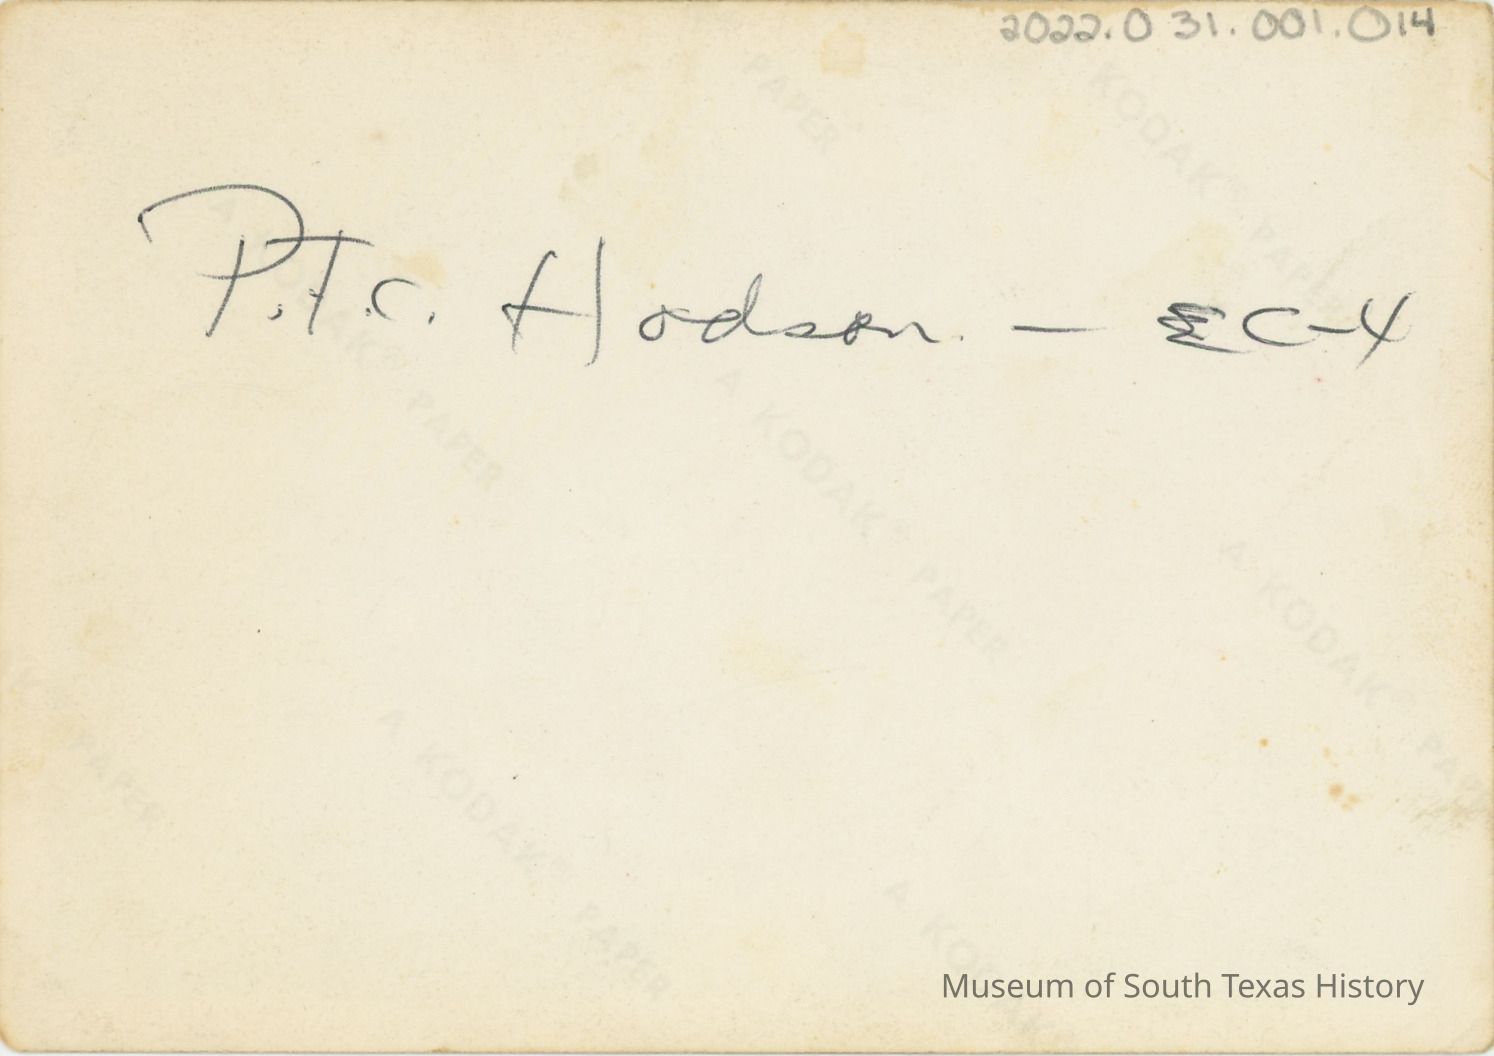 2022.031.001.014
PAPER
A KODAK® PAPER
A KODAK® PAPER
P.T.C. Hodson. — EC-4
A KODAK® PAPER
A KODAK® PAPER
K® PAPER
A KODAK® PAPER
A KODAK
Museum of South Texas History